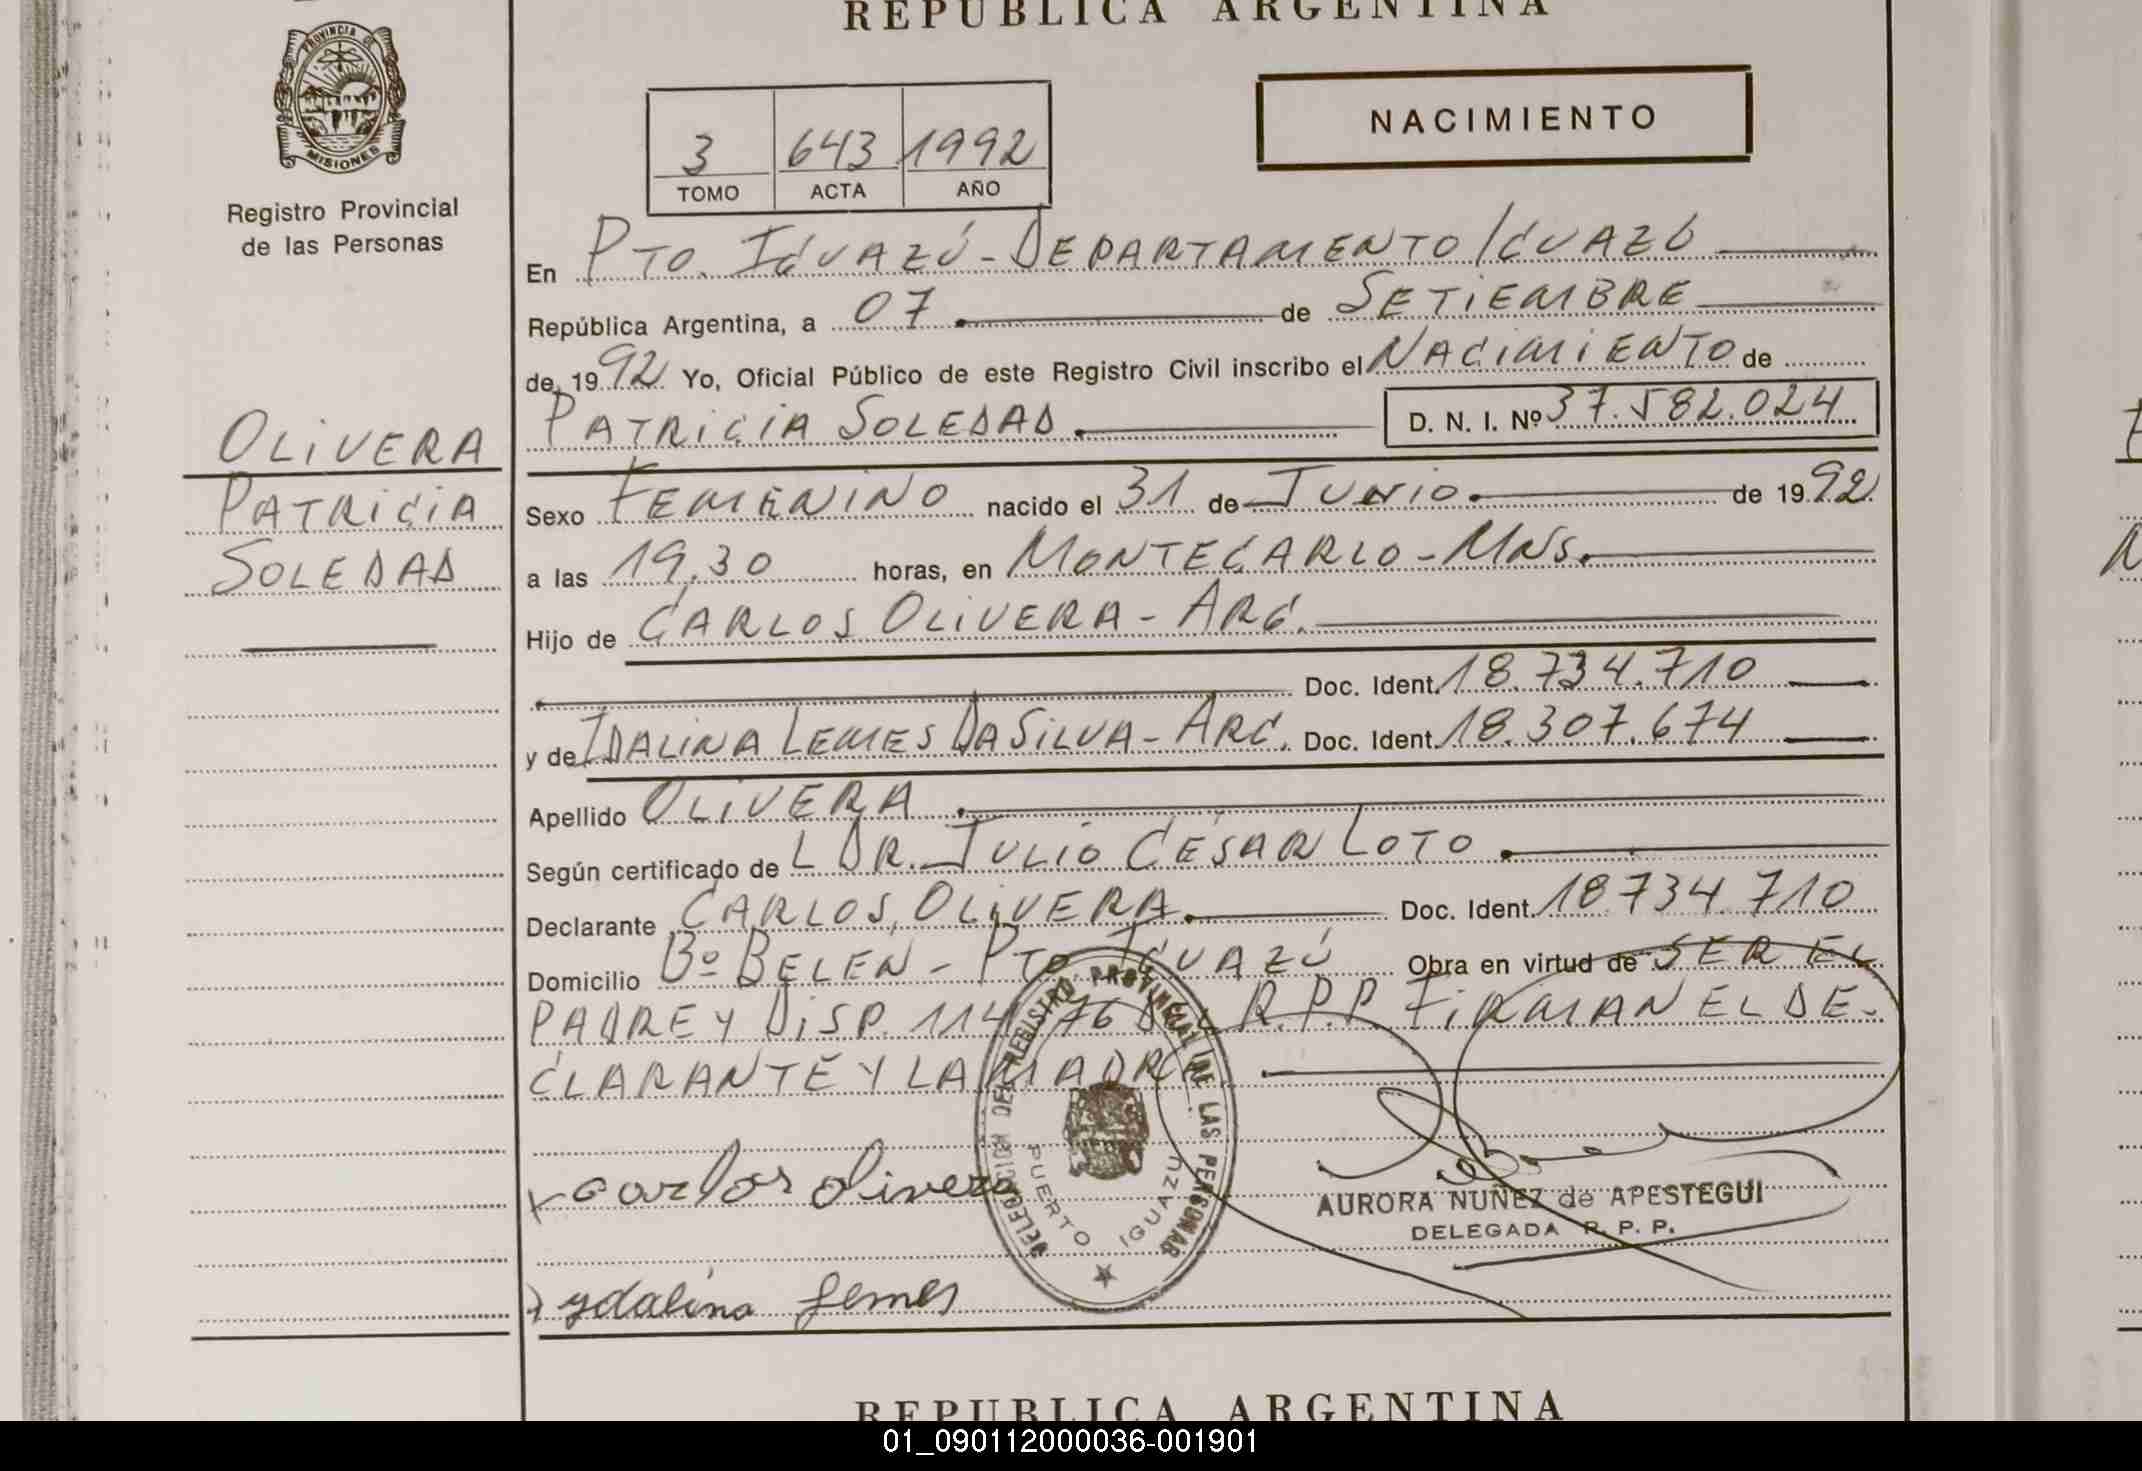 REPUBLICA ARGENTINA
PROVINCIA DE
MISIONES
Registro Provincial
de las Personas
NACIMIENTO
3 643 1992
TOMO ACTA AÑO
En PTO. IGUAZÚ - DEPARTAMENTO IGUAZÚ
República Argentina, a 07 de SETIEMBRE
de 1992 Yo, Oficial Público de este Registro Civil inscribo el NACIMIENTO de
PATRICIA SOLEDAD D. N. I. Nº 37.582.024
OLIVERA
PATRICIA
SOLEDAD
Sexo FEMENINO nacido el 31 de JUNIO de 1992
a las 19,30 horas, en MONTECARLO - MNS.
Hijo de CARLOS OLIVERA - ARG.
Doc. Ident. 18.734.710
y de IDALINA LEMES DA SILVA - ARG. Doc. Ident. 18.307.674
Apellido OLIVERA
Según certificado de L DR. JULIO CÉSAR LOTO
Declarante CARLOS OLIVERA Doc. Ident. 18734.710
Domicilio Bº BELÉN - PTO IGUAZÚ Obra en virtud de SER EL
PADRE Y DISP. 114 76 R.P.P FIRMAN EL DE-
CLARANTE Y LA MADRE
DELEGACION DEL REGISTRO PROVINCIAL DE LAS PERSONAS
PUERTO IGUAZU
x carlos olivera
AURORA NUÑEZ de APESTEGUI
DELEGADA R. P. P.
ydalina lemes
REPUBLICA ARGENTINA
01_090112000036-001901